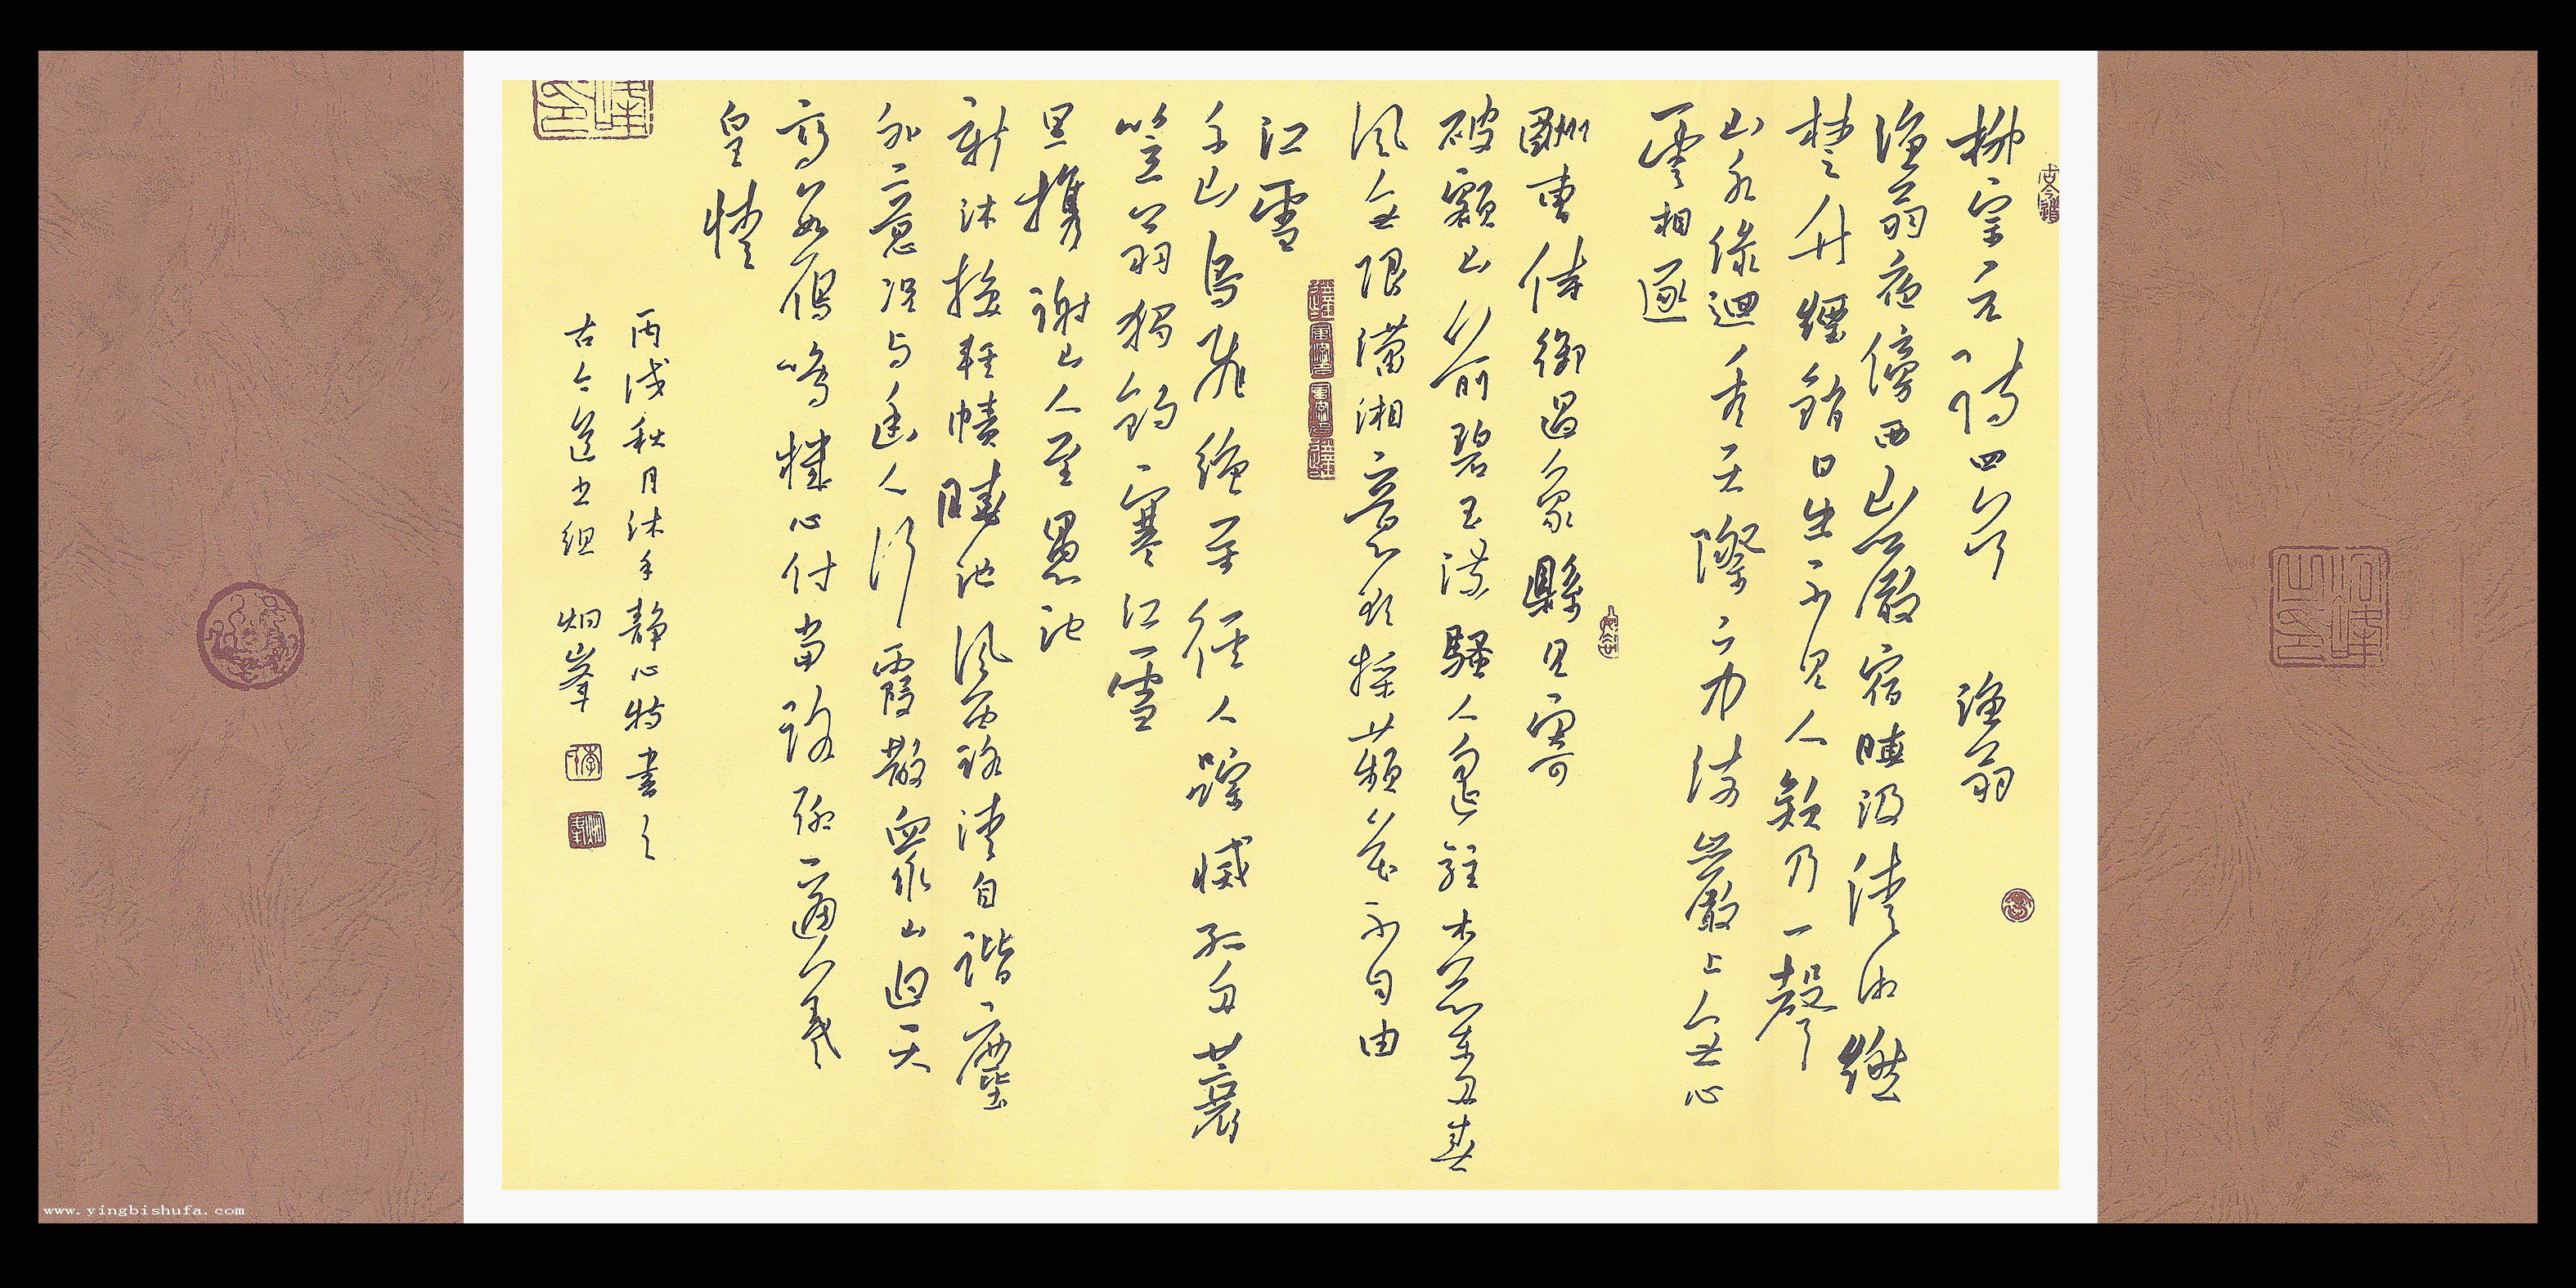 柳宗元詩四首 漁翁
漁翁夜傍西山巖宿曉汲清湘燃
楚竹煙銷日出不見人欸乃一聲
山水綠迴看天際下中流巖上無心
雲相逐
酬曹侍御過象縣見寄
破額山前碧玉流騷人遙駐木蘭舟春
風無限瀟湘意欲採蘋花不自由
江雪
千山鳥飛絕萬徑人蹤滅孤舟蓑
笠翁獨釣寒江雪
旦攜謝山人至愚池
新沐換輕幘曉池風露清自諧塵
外意況与幽人行霞散眾山迥天
高數雁鳴機心付當路聊適羲
皇情
丙戌秋月沐手靜心特書之
古今道主組 炯峯
www.yingbishufa.com